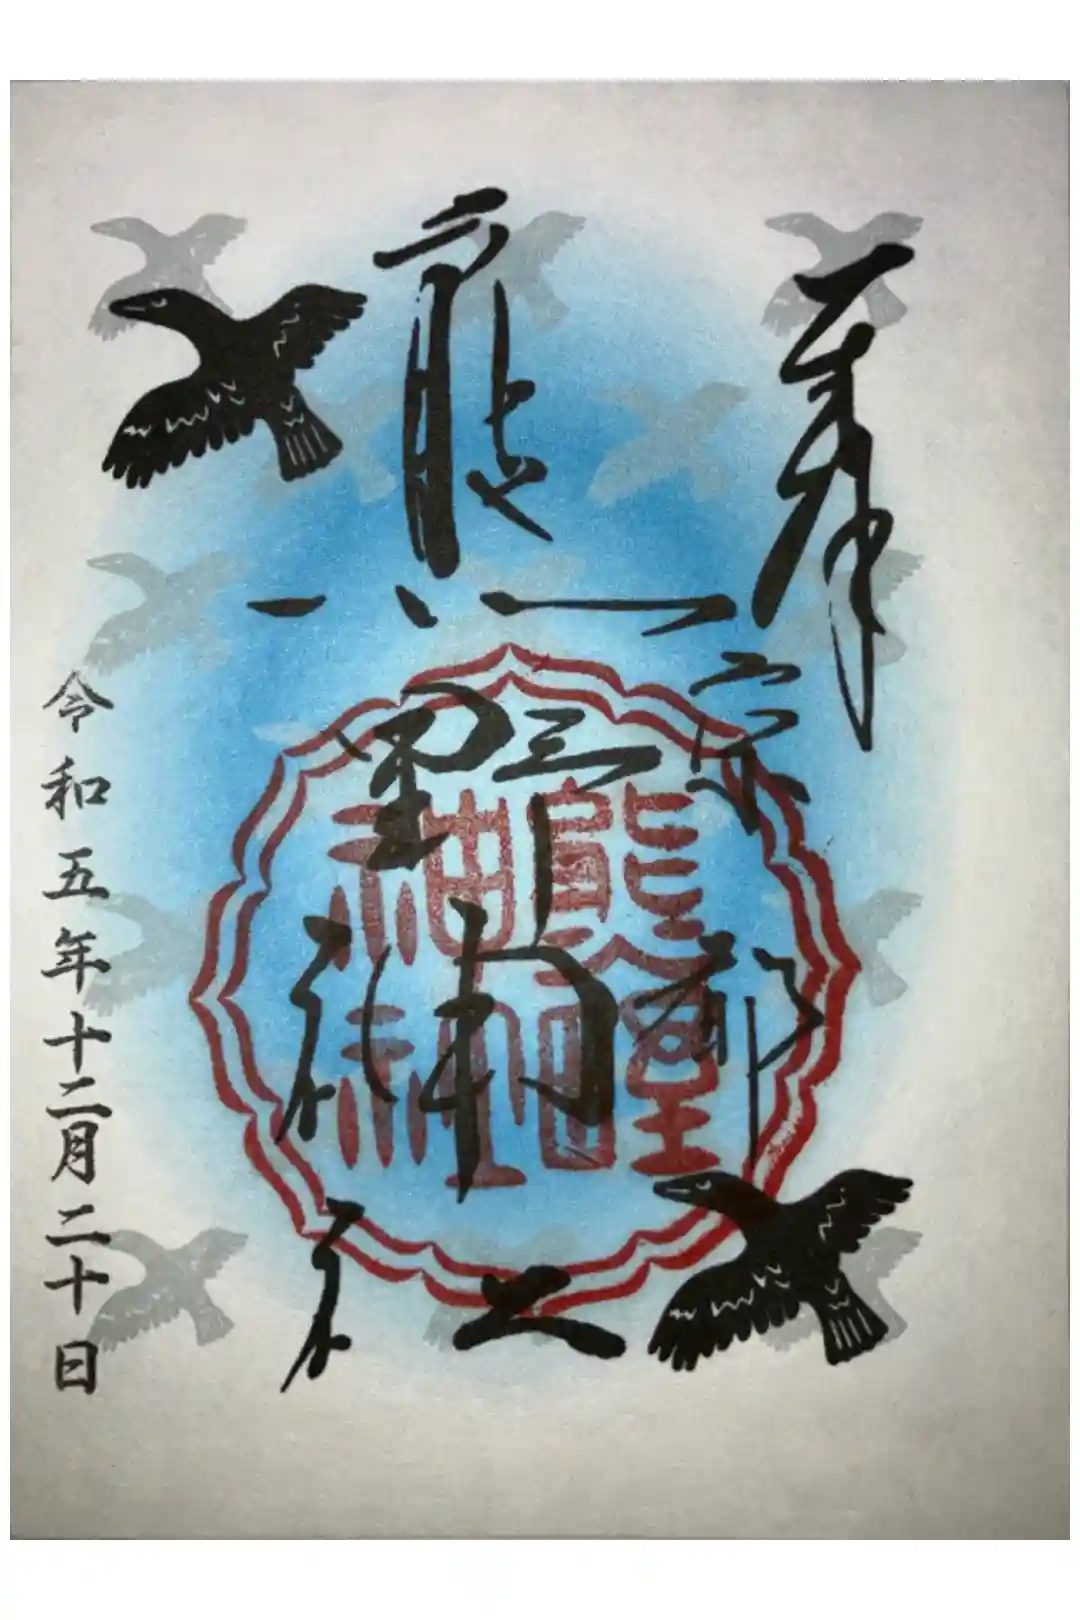 奉拝
京都
熊野神社
熊野神社
令和五年十二月二十日